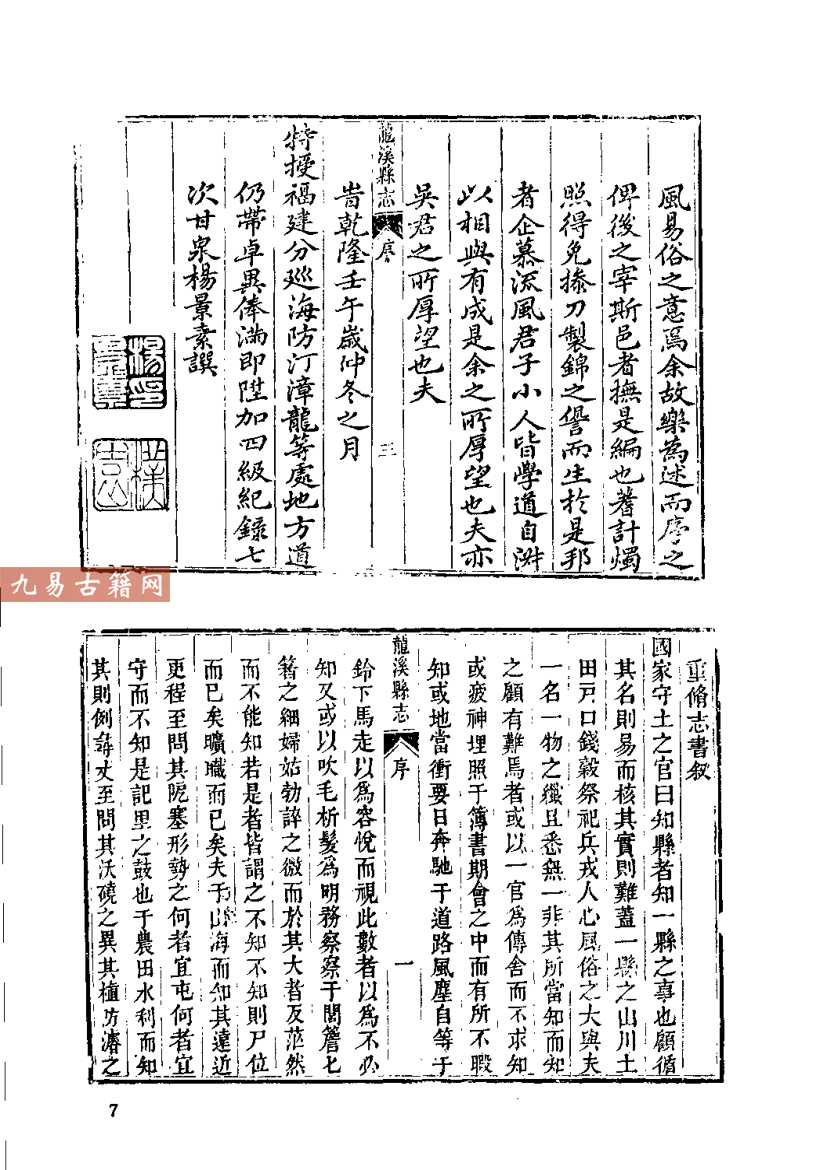 風易俗之意焉余故樂為述而序之
俾後之宰斯邑者撫是編也蓍計燭
照得免操刀製錦之譽而生於是邦
者企慕流風君子小人皆學道自淑
以相與有成是余之所厚望也夫亦
吳君之所厚望也夫
旹乾隆壬午歲仲冬之月
龍溪縣志
序
三
特授福建分巡海防汀漳龍等處地方道
仍帶卓異俸滿即陞加四級紀錄七
次甘泉楊景素譔
九易古籍网
重脩志書叙
國家守土之官曰知縣者知一縣之事也顧循
其名則易而核其實則難蓋一縣之山川土
田戸口錢穀祭祀兵戎人心風俗之大與夫
一名一物之纖且悉無一非其所當知而知
之顧有難焉者或以一官為傳舍而不求知
或疲神埋照于簿書期會之中而有所不暇
知或地當衝要日奔馳于道路風塵自等于
龍溪縣志
序
一
鈴下馬走以為容悅而視此數者以為不必
知又或以吹毛析髮為明務察察于閭簷匕
箸之細婦姑勃誶之微而於其大者反茫然
而不能知若是者皆謂之不知不知則尸位
而已矣曠職而已矣夫于山海而知其遠近
更程至問其阨塞形勢之何者宜屯何者宜
守而不知是記里之鼓也于農田水利而知
其則例譐丈至問其沃磽之異其植坊濬之
7